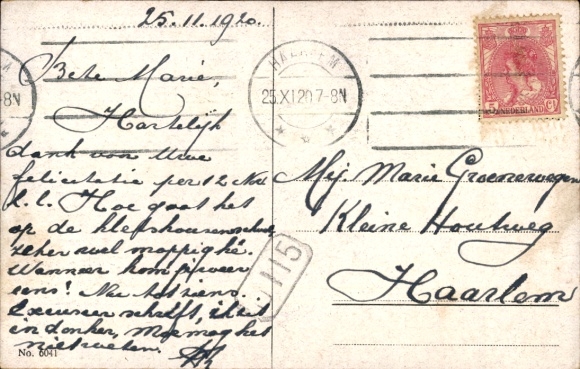 25.11.1920.
Beste Marie,
Hartelijk
dank voor Uwe
felicitatie per 12 Nov
l.l. Hoe gaat het
op de
zeker wel moppig hè.
Wanneer kom je weer
eens? Nu tot ziens.
schrift, ik zit
in donker, Moe mag het
niet weten.
No. 6041
HAARLEM
25.XI.20 7-8N
8N
5 NEDERLAND CT
115
Mej. Marie Groenewegen
Kleine Houtweg
Haarlem